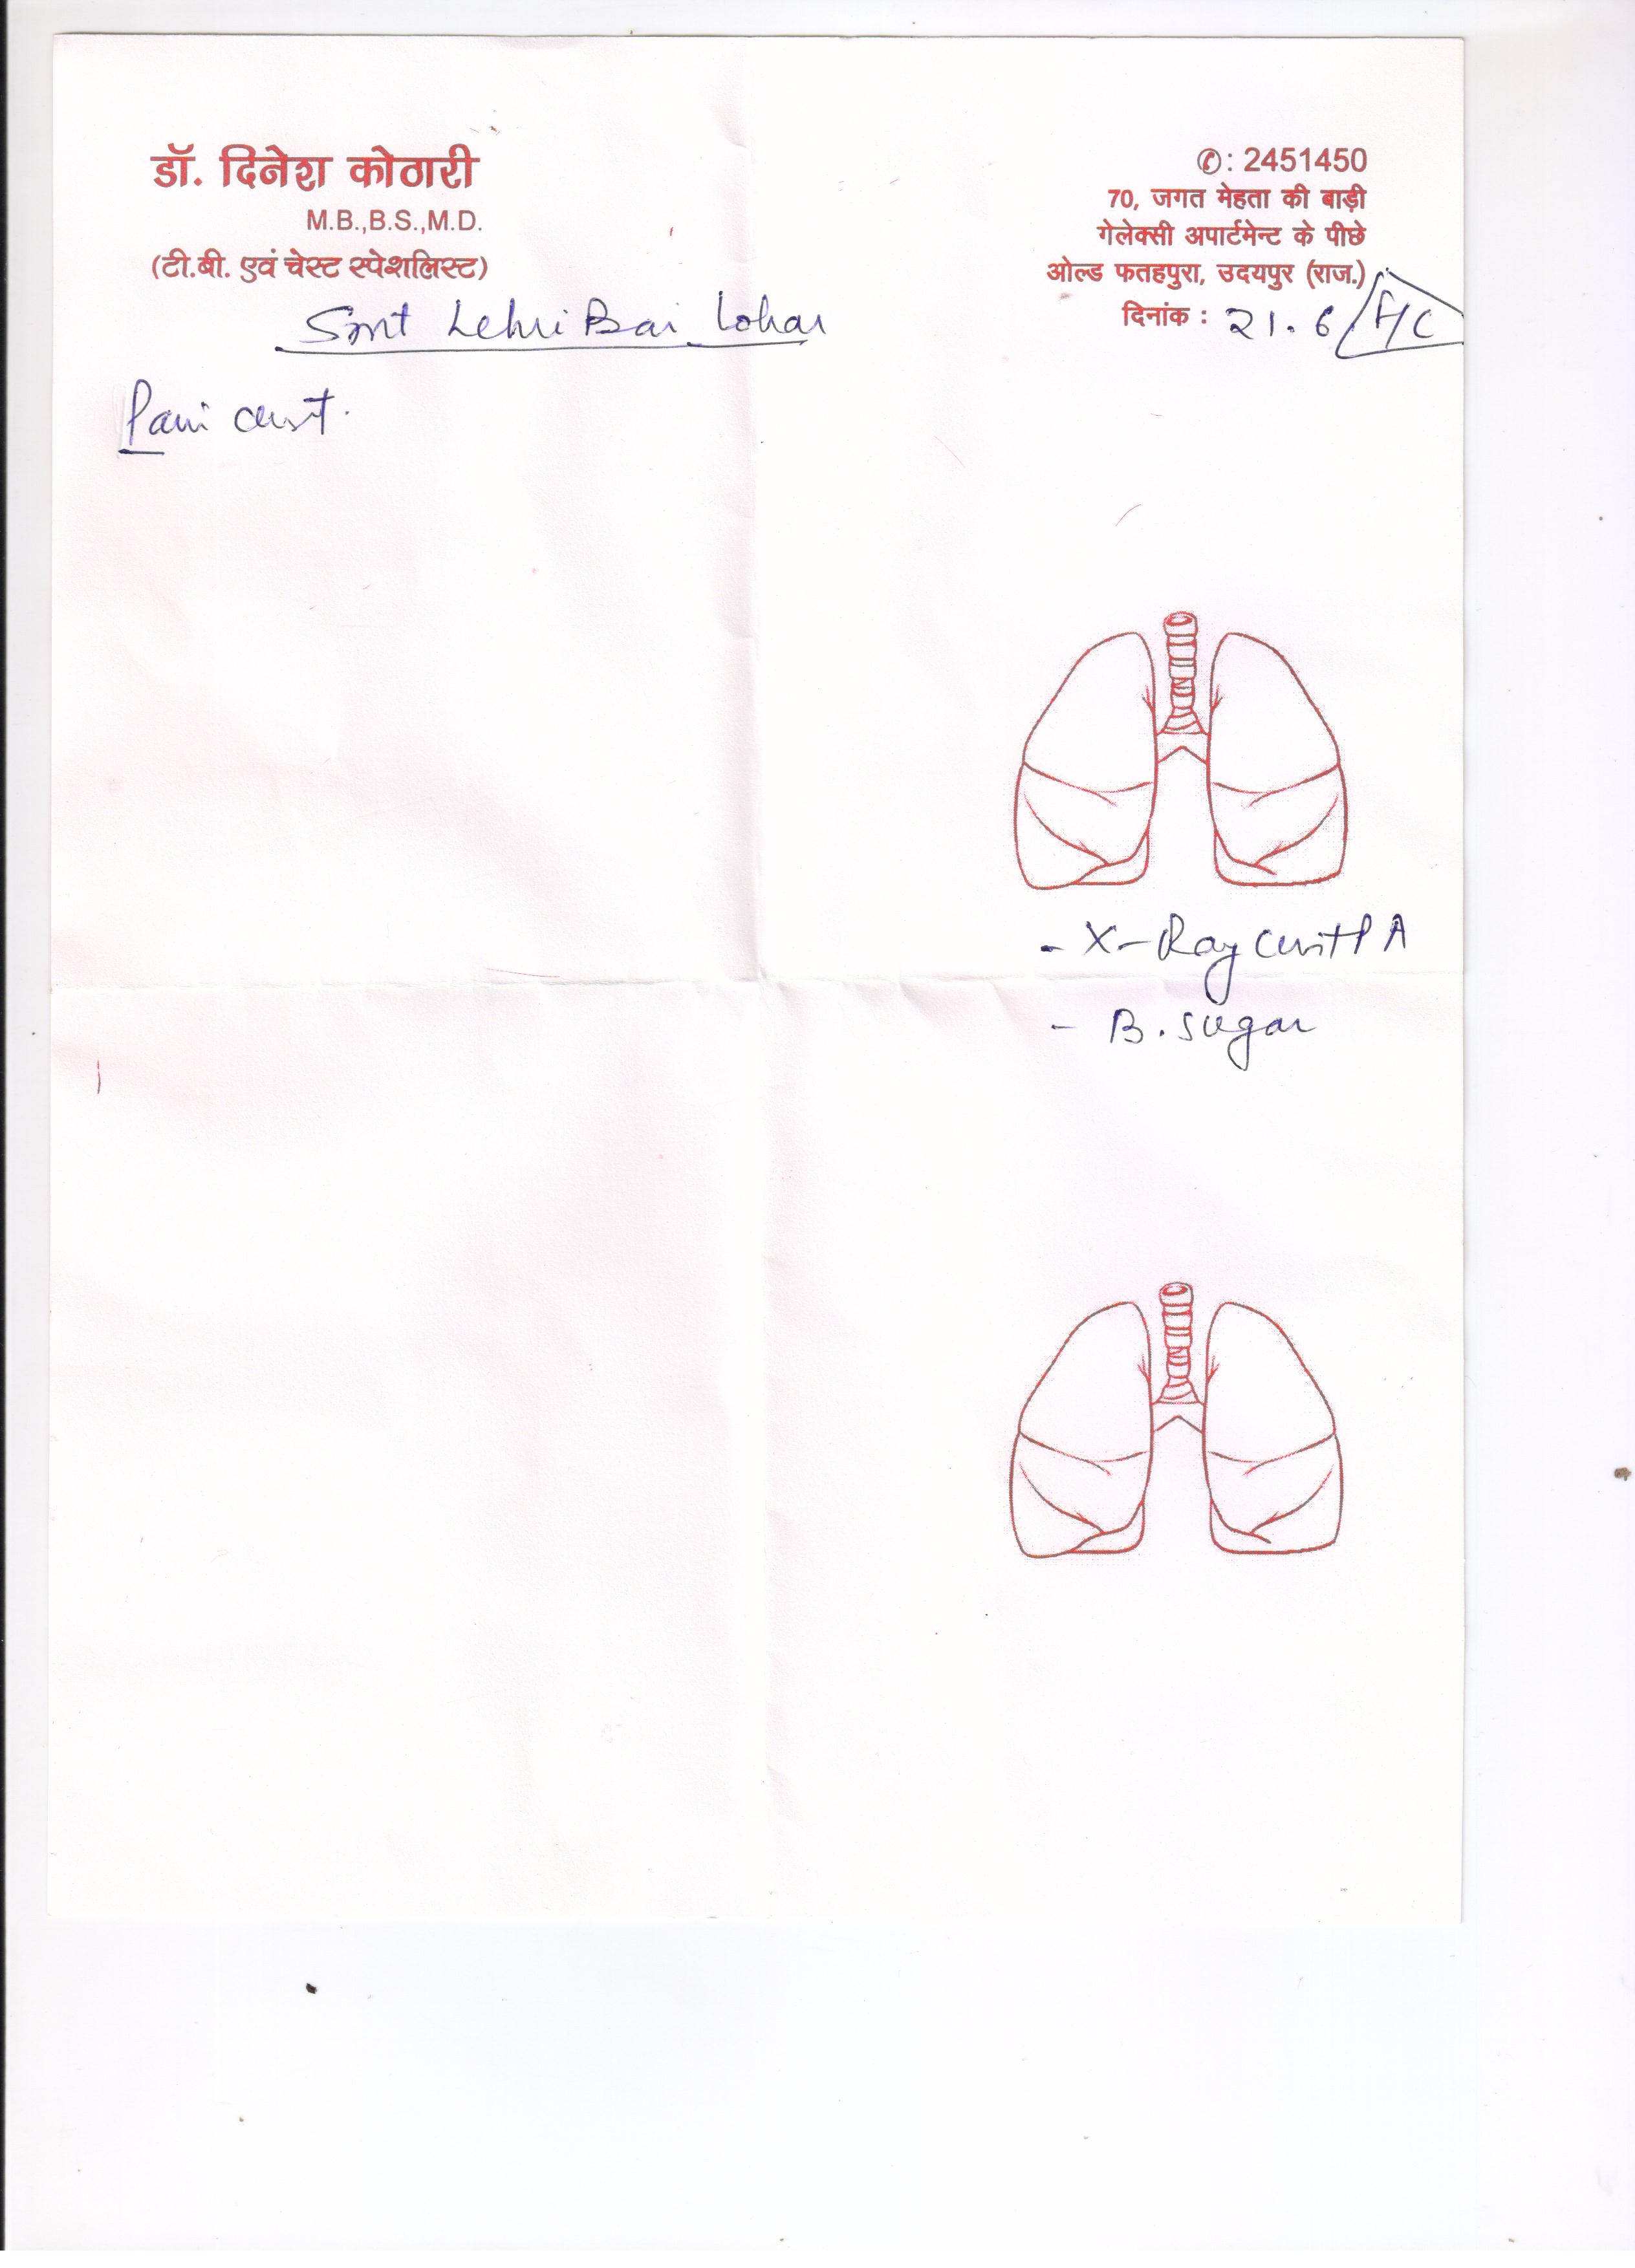 डॉ. दिनेश कोठारी
M.B.,B.S.,M.D.
(टी.बी. एवं चेस्ट स्पेशलिस्ट)
✆: 2451450
70, जगत मेहता की बाड़ी
गेलेक्सी अपार्टमेन्ट के पीछे
ओल्ड फतहपुरा, उदयपुर (राज.)
दिनांक : 21.6
Smt Lehri Bai Lohar
Pain
- X-Ray PA
- B. Sugar